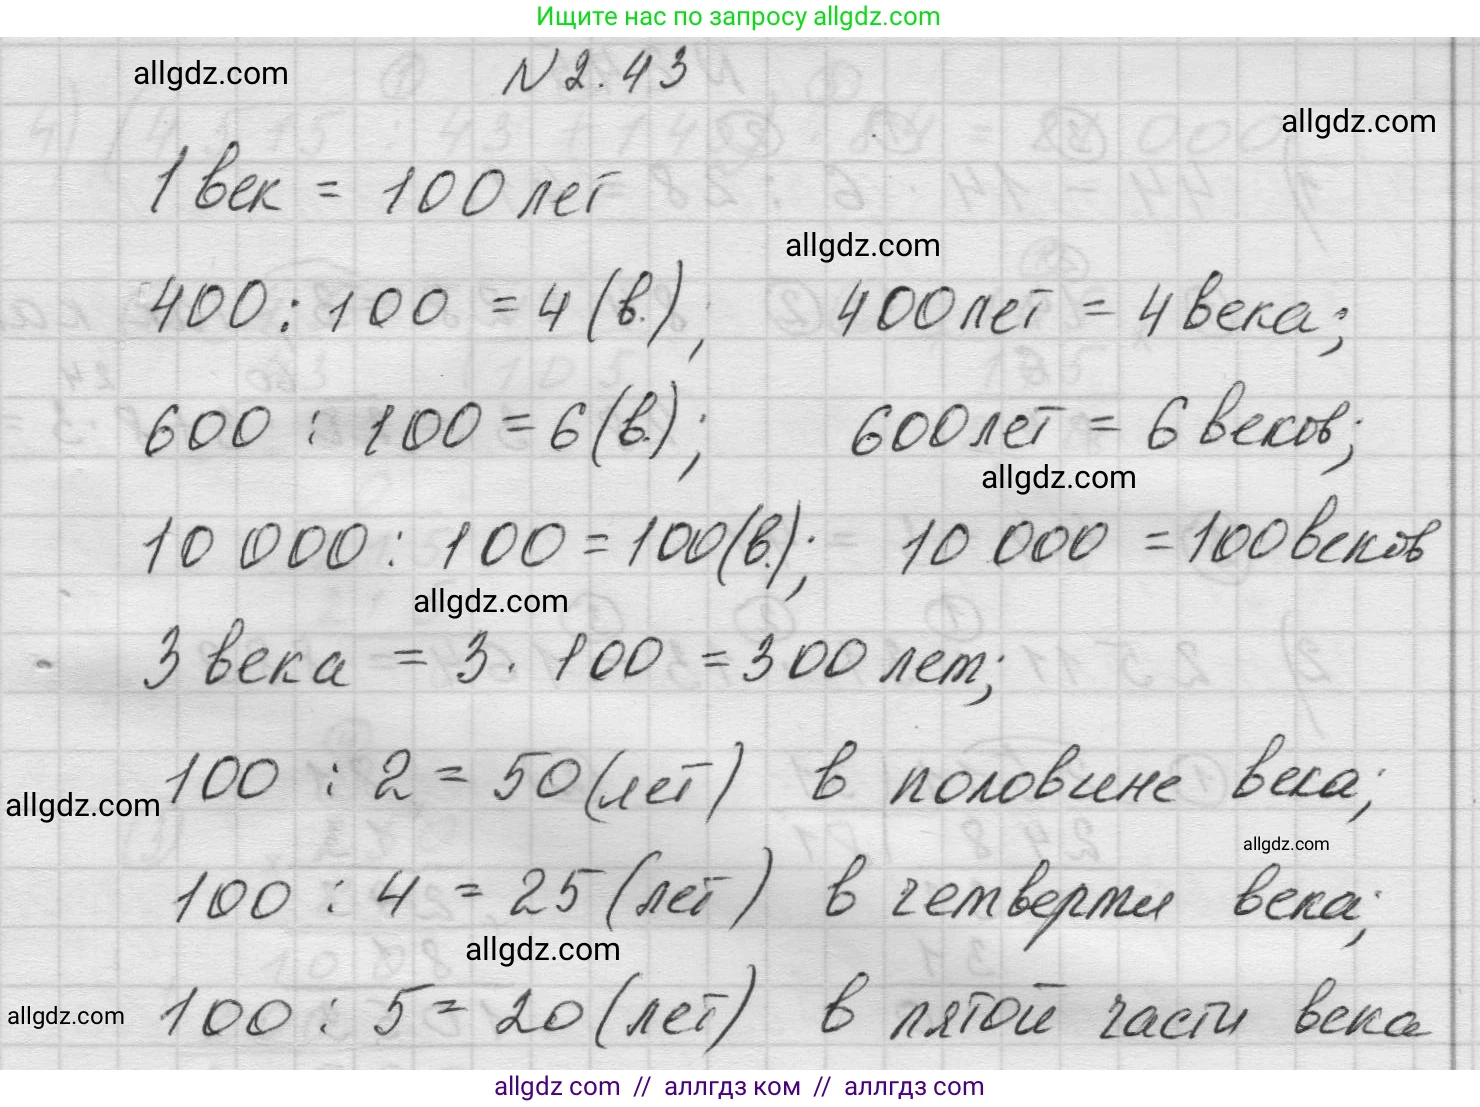 Ищите нас по запросу allgdz.com
allgdz.com
N 2.43
allgdz.com
1 век = 100 лет
allgdz.com
400 : 100 = 4 (в.); 400 лет = 4 века;
600 : 100 = 6 (в.); 600 лет = 6 веков;
allgdz.com
10 000 : 100 = 100 (в.); 10 000 = 100 веков
allgdz.com
3 века = 3 · 100 = 300 лет;
100 : 2 = 50 (лет) в половине века;
allgdz.com
allgdz.com
100 : 4 = 25 (лет) в четверти века;
allgdz.com
100 : 5 = 20 (лет) в пятой части века
allgdz.com
allgdz com // аллгдз ком // аллгдз com